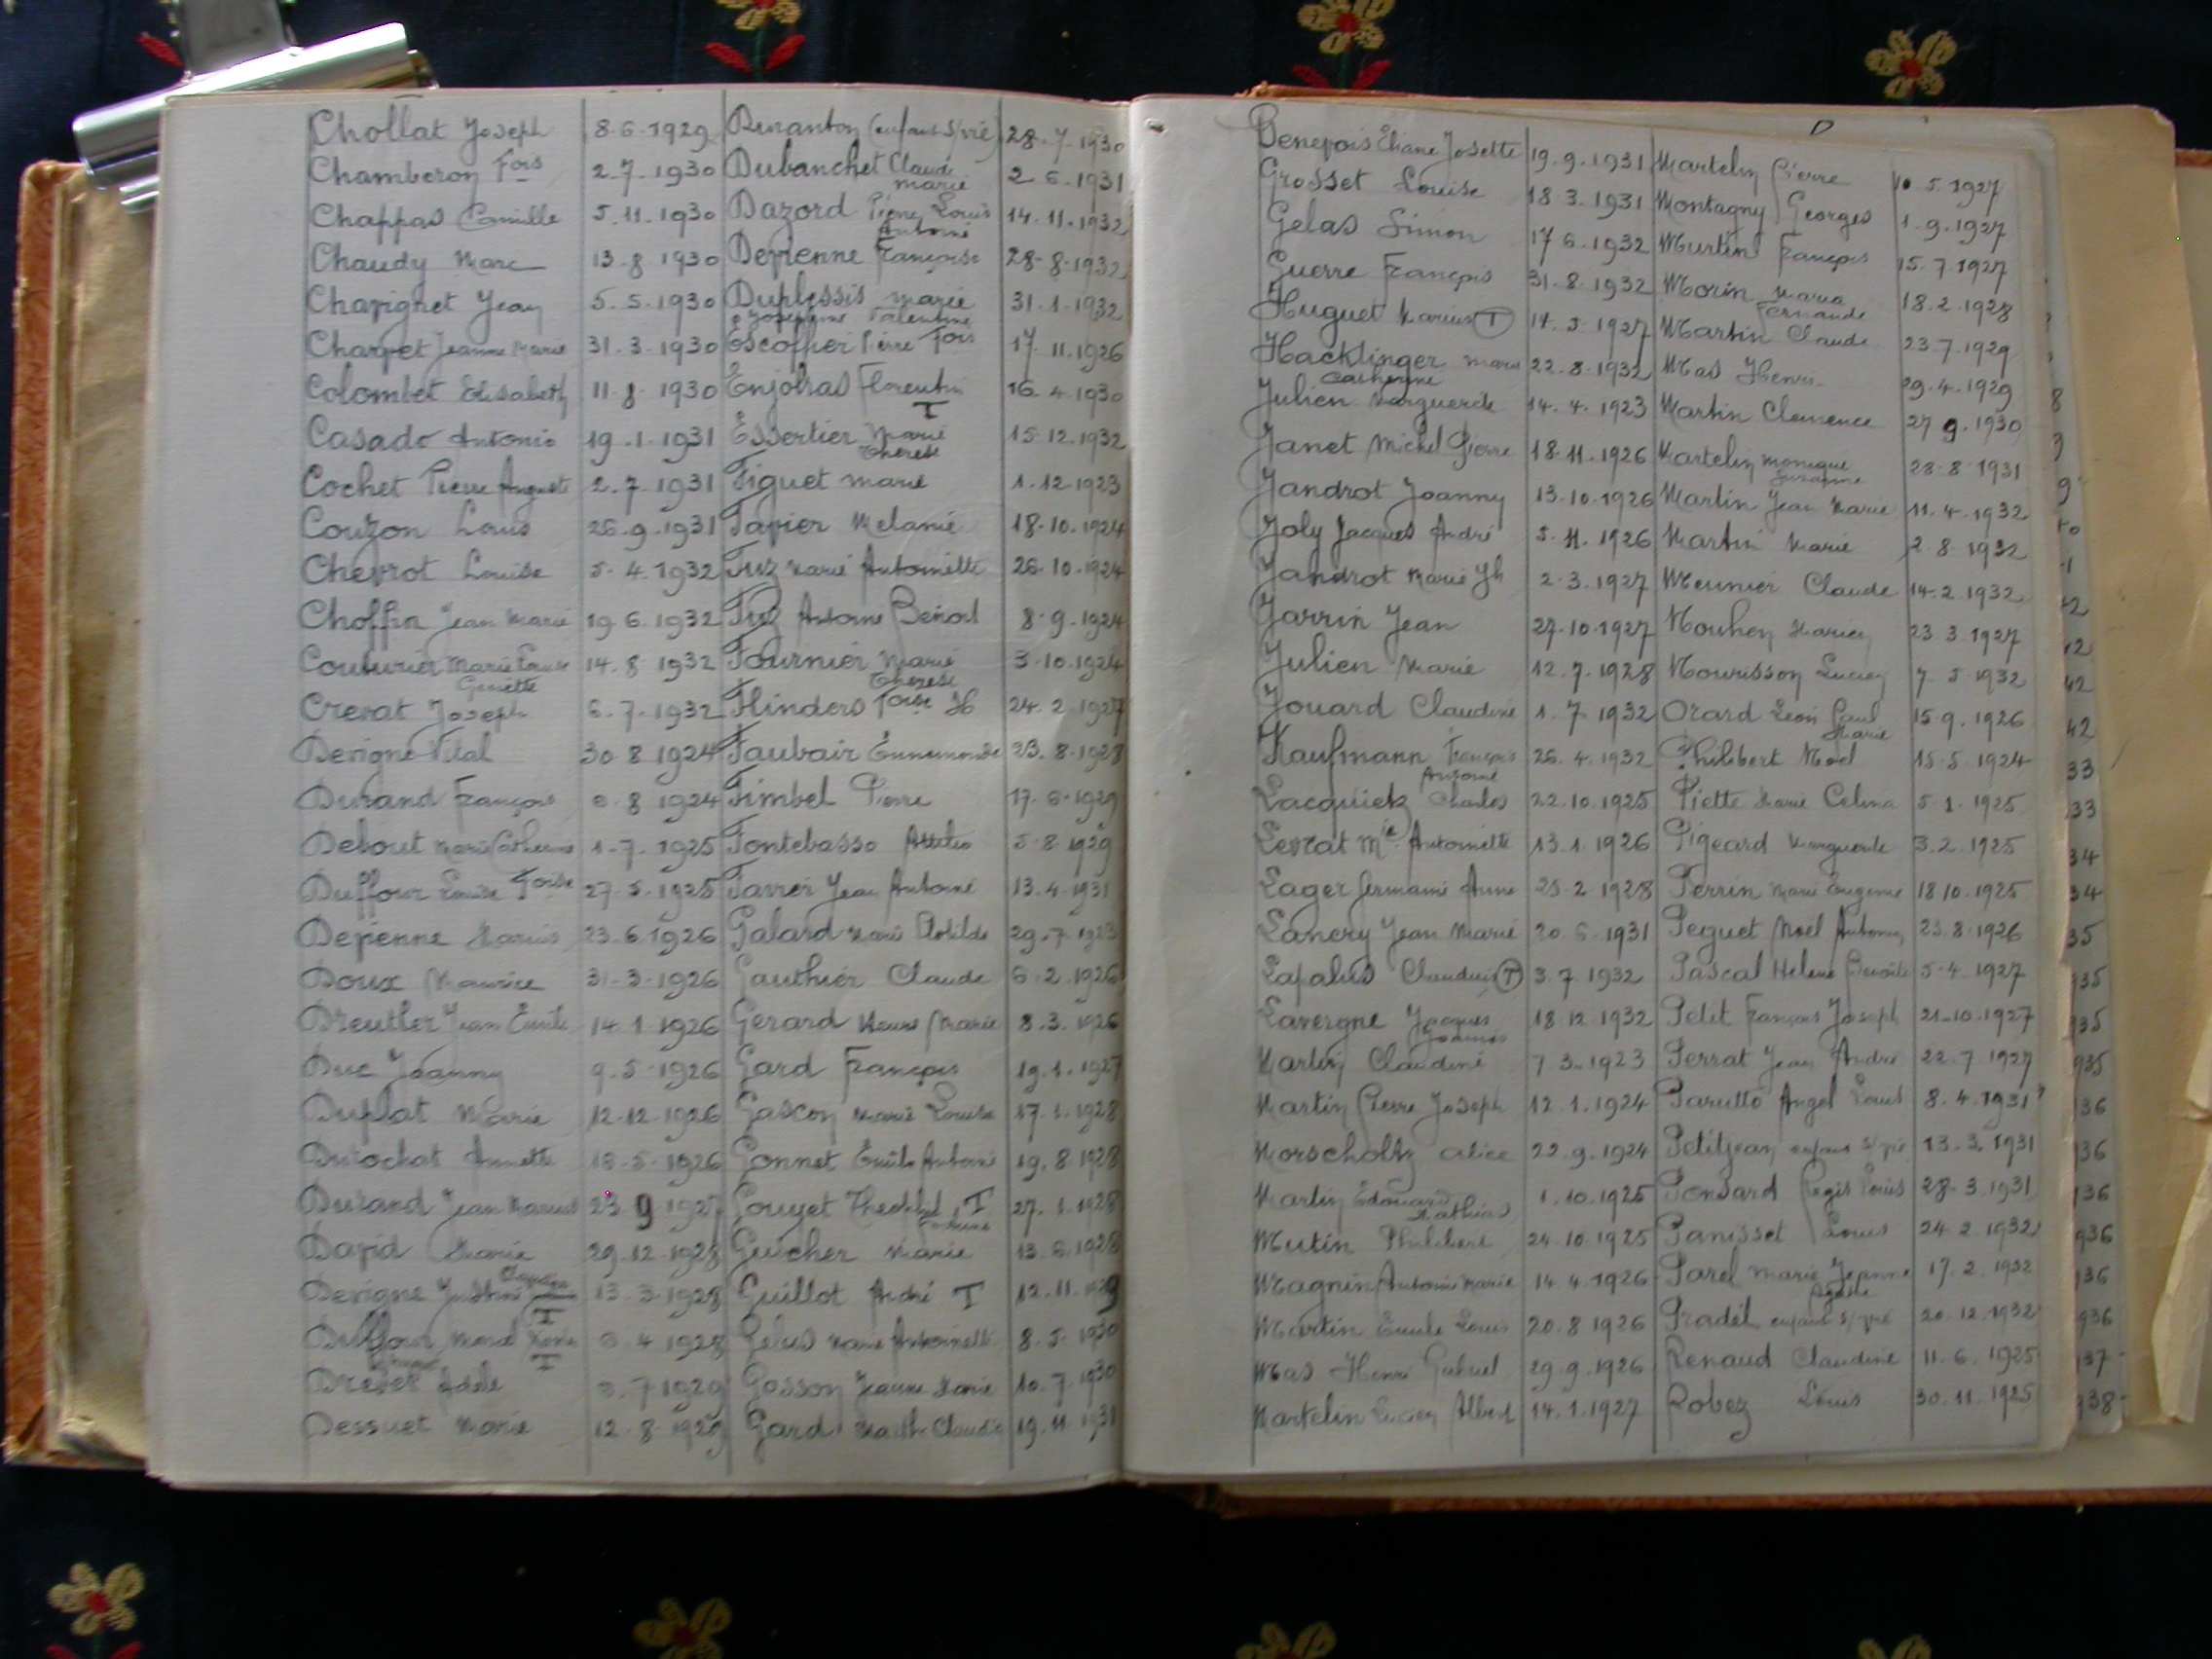 Chollat Joseph 8.6.1929
Chamberon Fois 2.7.1930
Chappas Camille 5.11.1930
Chaudy Marc 13.8.1930
Chavignet Jean 5.5.1930
Charvet Jeanne Marie 31.3.1930
Colombet Elisabeth 11.8.1930
Casado Antonio 19.1.1931
Cochet Pierre Auguste 2.7.1931
Couzon Louis 26.9.1931
Chevrot Louise 5.4.1932
Choffin Jean Marie 19.6.1932
Couturier Marie Louise 14.8.1932
Ginette
Crevat Joseph 6.7.1932
Devigne Vital 30.8.1924
Durand François 8.1924
Debout Marie Catherine 1.7.1925
Duffour Louise Foise 27.5.1925
Depenne Marius 23.6.1926
Doux Maurice 31.3.1926
Dreutler Jean Emile 14.1.1926
Duc Joanny 9.5.1926
Duplat Marie 12.12.1926
Durochat Annette 18.5.1926
Durand Jean Marius 23.9.1927
David Marie 29.12.1928
Devigne 13.3.1928
T
Duffour 4.1928
T
Adèle 7.1929
Dessuet Marie 12.8.1929
(enfant s/vie) 28.7.1930
Dubanchet Claude 2.6.1931
Marie
Dazord Pierre Louis 14.11.1932
Antoine
Depienne Françoise 28.8.1932
Duplessis Marie 31.1.1932
Joséphine Valentine
Escoffier Pierre Fois 17.11.1926
Enjolras Florentin 16.4.1930
T
Essertier Marie 15.12.1932
Thérèse
Figuet Marie 1.12.1923
Favier Mélanie 18.10.1924
Fuz Marie Antoinette 26.10.1924
Fuz Antoine Benoit 8.9.1924
Fournier Marie 3.10.1924
Thérèse
Flinders Foise H 24.2.1927
Faubair Ennemonde 23.8.1928
Fimbel Pierre 17.6.1929
Fontebasso Attilio 5.8.1929
Favrei Jean Antoine 13.4.1931
Galard Marie Clotilde 29.7.1923
Gauthier Claude 6.2.1926
Gerard Marie 8.3.1926
Gard François 19.1.1927
Gascon Marie Louise 17.1.1928
Gonnet Emile Antoine 19.8.1928
Gouyet T 27.1.1928
Guicher Marie 13.6.1928
Guillot André T 12.11.1929
Gelus Marie Antoinette 8.5.1930
Gosson Jeanne Marie 10.7.1930
Gard Marthe Claudia 19.11.1931
Genefois Eliane Josette 19.9.1931
Grosset Louise 18.3.1931
Gelas Simon 17.6.1932
Guerre François 31.8.1932
Huguet Marius T 14.5.1927
Hacklinger Marie 22.8.1932
Catherine
Julien Marguerite 14.4.1923
Janet Michel Pierre 18.11.1926
Jandrot Joanny 13.10.1926
Joly Jacques André 5.11.1926
Jandrot Marie Jh 2.3.1927
Jarrin Jean 27.10.1927
Julien Marie 12.7.1928
Jouard Claudine 1.7.1932
Kaufmann François 26.4.1932
Antoine
Lacquiek Charles 22.10.1925
Levrat Mie Antoinette 13.1.1926
Lager Germaine Anne 25.2.1928
Lanery Jean Marie 20.6.1931
Lapalus Claudius T 3.7.1932
Lavergne Jacques 18.12.1932
Joannès
Martin Claudine 7.3.1923
Martin Pierre Joseph 12.1.1924
Morscholtz Alice 22.9.1924
Martin Edouard 1.10.1925
Mathias
Mutin Philibert 24.10.1925
Magnin Antoine Marie 14.4.1926
Martin Emile Louis 20.8.1926
Mas Henri Gabriel 29.9.1926
Martelin Lucien Albert 14.1.1927
D
Martelin Pierre 10.5.1927
Montagny Georges 1.9.1927
Murtin François 15.7.1927
Morin Maria 18.2.1928
Fernande
Martin Claude 23.7.1929
Mas Henri 29.4.1929
Martin Clemence 27.9.1930
Martelin Monique 28.8.1931
Suzanne
Martin Jean Marie 11.4.1932
Martin Marie 2.8.1932
Meunier Claude 14.2.1932
Mouhen 23.3.1927
Nourisson Lucien 7.5.1932
Orard Léon Paul 15.9.1926
Marie
Philibert Noël 15.5.1924
Piette Marie Celina 5.1.1925
Pigeard Marguerite 3.2.1925
Perrin Marie Eugenie 18.10.1925
Peyguet Noël Antonin 23.8.1926
Pascal Helene Benoite 5.4.1927
Petit François Joseph 21.10.1927
Perrat Jean André 22.7.1927
Parutto Angel Louis 8.4.1931
Petitjean enfant s/vie 13.3.1931
Ponsard Regis Louis 28.3.1931
Panisset Louis 24.2.1932
Parel Marie Jeanne 17.2.1932
Pradel enfant s/vie 20.12.1932
Renaud Claudine 11.6.1925
Robez Louis 30.11.1925
8
9
9
40
42
42
42
42
33
33
34
34
35
935
935
935
936
936
936
936
936
936
937
938